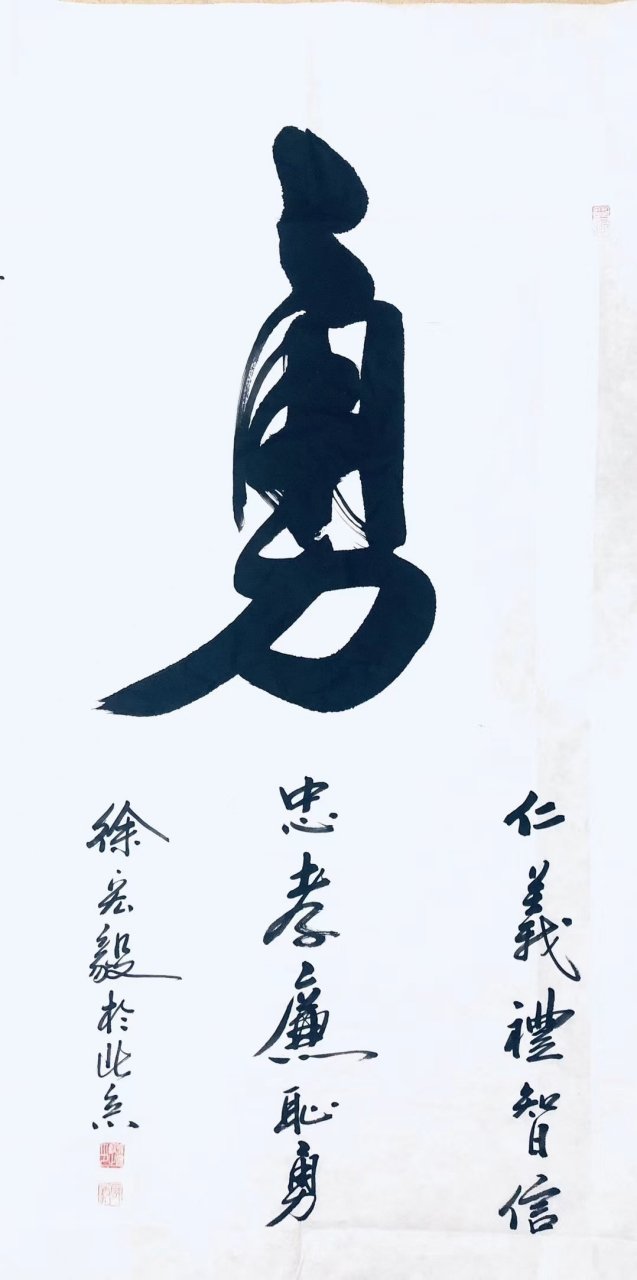 勇
仁義禮智信
忠孝廉恥勇
徐宏毅於北京